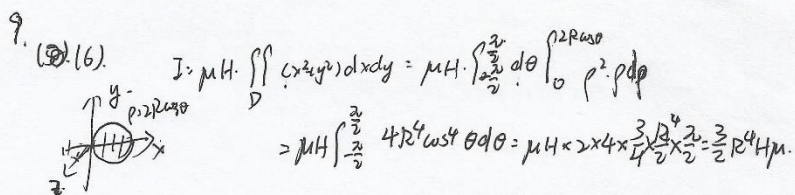 9.
(6). I = μH · ∬_D (x²+y²)dxdy = μH · ∫_{-π/2}^{π/2} dθ ∫_0^{2Rcosθ} ρ²·ρdρ
y
ρ=2Rcosθ
x
z
= μH ∫_{-π/2}^{π/2} 4R⁴cos⁴θdθ = μH × 2 × 4 × 3/4 × R⁴/2 × π/2 = 3/2 R⁴Hμ.